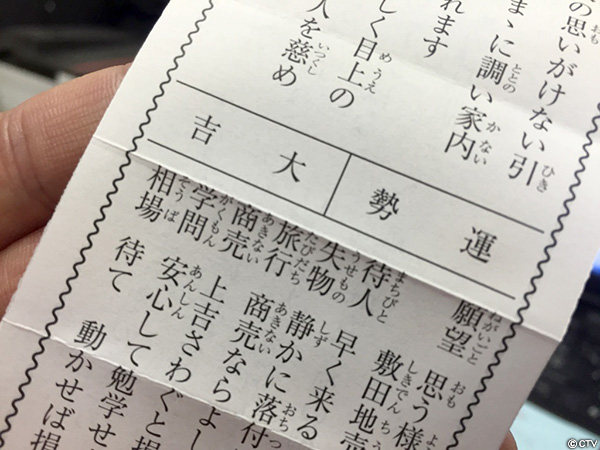 の思いがけない引
まゝに調い家内
れます
しく目上の
人を慈め
運勢
大吉
願望 思う様
敷田地売
待人 早く来る
失物 静かに落付
旅行 商売ならよし
商売 上吉さわぐと損
学問 安心して勉学せ
相場 待て 動かせば損
© CTV